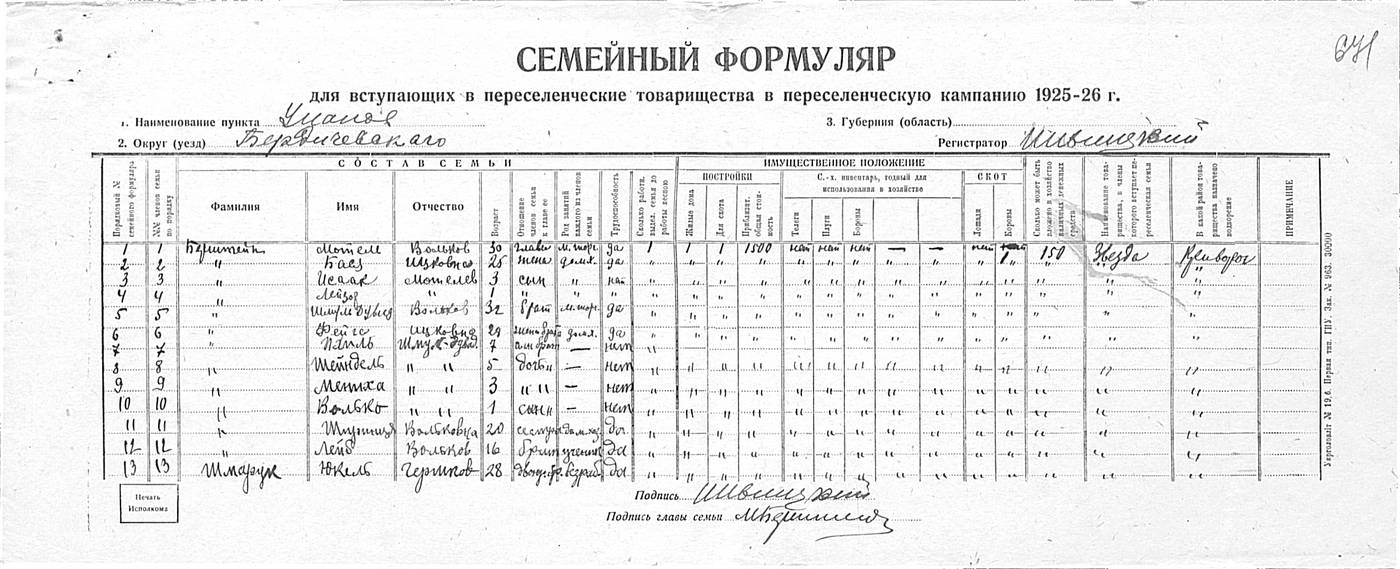 671
СЕМЕЙНЫЙ ФОРМУЛЯР
для вступающих в переселенческие товарищества в переселенческую кампанию 1925-26 г.
1. Наименование пункта Уланов 3. Губерния (область)
2. Округ (уезд) Бердичевскаго Регистратор
СОСТАВ СЕМЬИ ИМУЩЕСТВЕННОЕ ПОЛОЖЕНИЕ
Порядковый № семейного формуляра
№№ членов семьи по порядку
Фамилия
Имя
Отчество
Возраст
Отношение членов семьи к главе ее
Род занятий каждого из членов семьи
Трудоспособность
Сколько работн. выдел. семья до работы весною
ПОСТРОЙКИ
Жилые дома
Для скота
Приблизит. общая стоимость
С.-х. инвентарь, годный для использования в хозяйстве
Телеги
Плуги
Бороны
СКОТ
Лошади
Коровы
Сколько может быть вложено в хозяйство наличных денежных средств
Наименование товарищества, в члены которого вступает переселенческая семья
В какой район товарищества назначено водворение
ПРИМЕЧАНИЕ
1 1 Бернштейн Мотель Вольков 30 глава м. торг. да 1 1 1 1500 нет нет нет — — нет 150 Звезда Кривборог
2 2 " Бася Ицковна 25 жена домх. да " " " " " " " " " " " " " "
3 3 " Исаак Мотелев 3 сын " нет " " " " " " " " " " " " "
4 4 " Лейзор " 1 " " " " " " " " " " " " " " " "
5 5 " Шмуль Дувид Вольков 32 брат м. торг. да " " " " " " " " " " " " "
6 6 " Фейга Ицковна 29 жена брата домх. да " " " " " " " " " " " " "
7 7 " Шмул-Дувид 7 — нет "
8 8 " Шейндель " " 5 дочь " — нет " " " " " " " " " " " " "
9 9 " " " 3 " " — нет " " " " " " " " " " " " "
10 10 " Волько " " 1 сын " — нет " " " " " " " " " " " " "
11 11 " Вольковна 20 сестра домхоз. да " " " " " " " " " " " " "
12 12 " Лейб Вольков 16 брат ученик да " " " " " " " " " " " " "
13 13 Шмарук Юкель Гершков 28 двоюр. бр. безраб. да " " " " " " " " " " " " "
Печать Исполкома
Подпись
Подпись главы семьи МБернштейн
Укрголовліт № 19.6. Первая тип. ГПУ. Зак. № 963. 30000